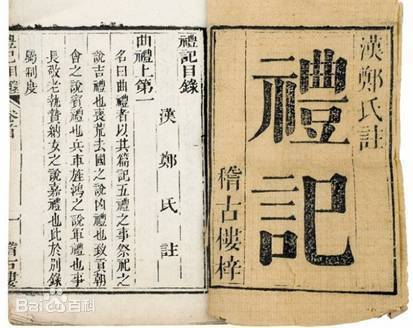 漢鄭氏註
禮記
稽古樓梓
禮記目錄
漢鄭氏註
曲禮上第一
名曰曲禮者以其篇記五禮之事祭祀之
說吉禮也喪荒去國之說凶禮也致貢朝
會之說賓禮也兵車旌鴻之說軍禮也事
長敬老執贄納女之說嘉禮也此於別錄
屬制度
禮記目錄
一
稽古樓
Baidu百科